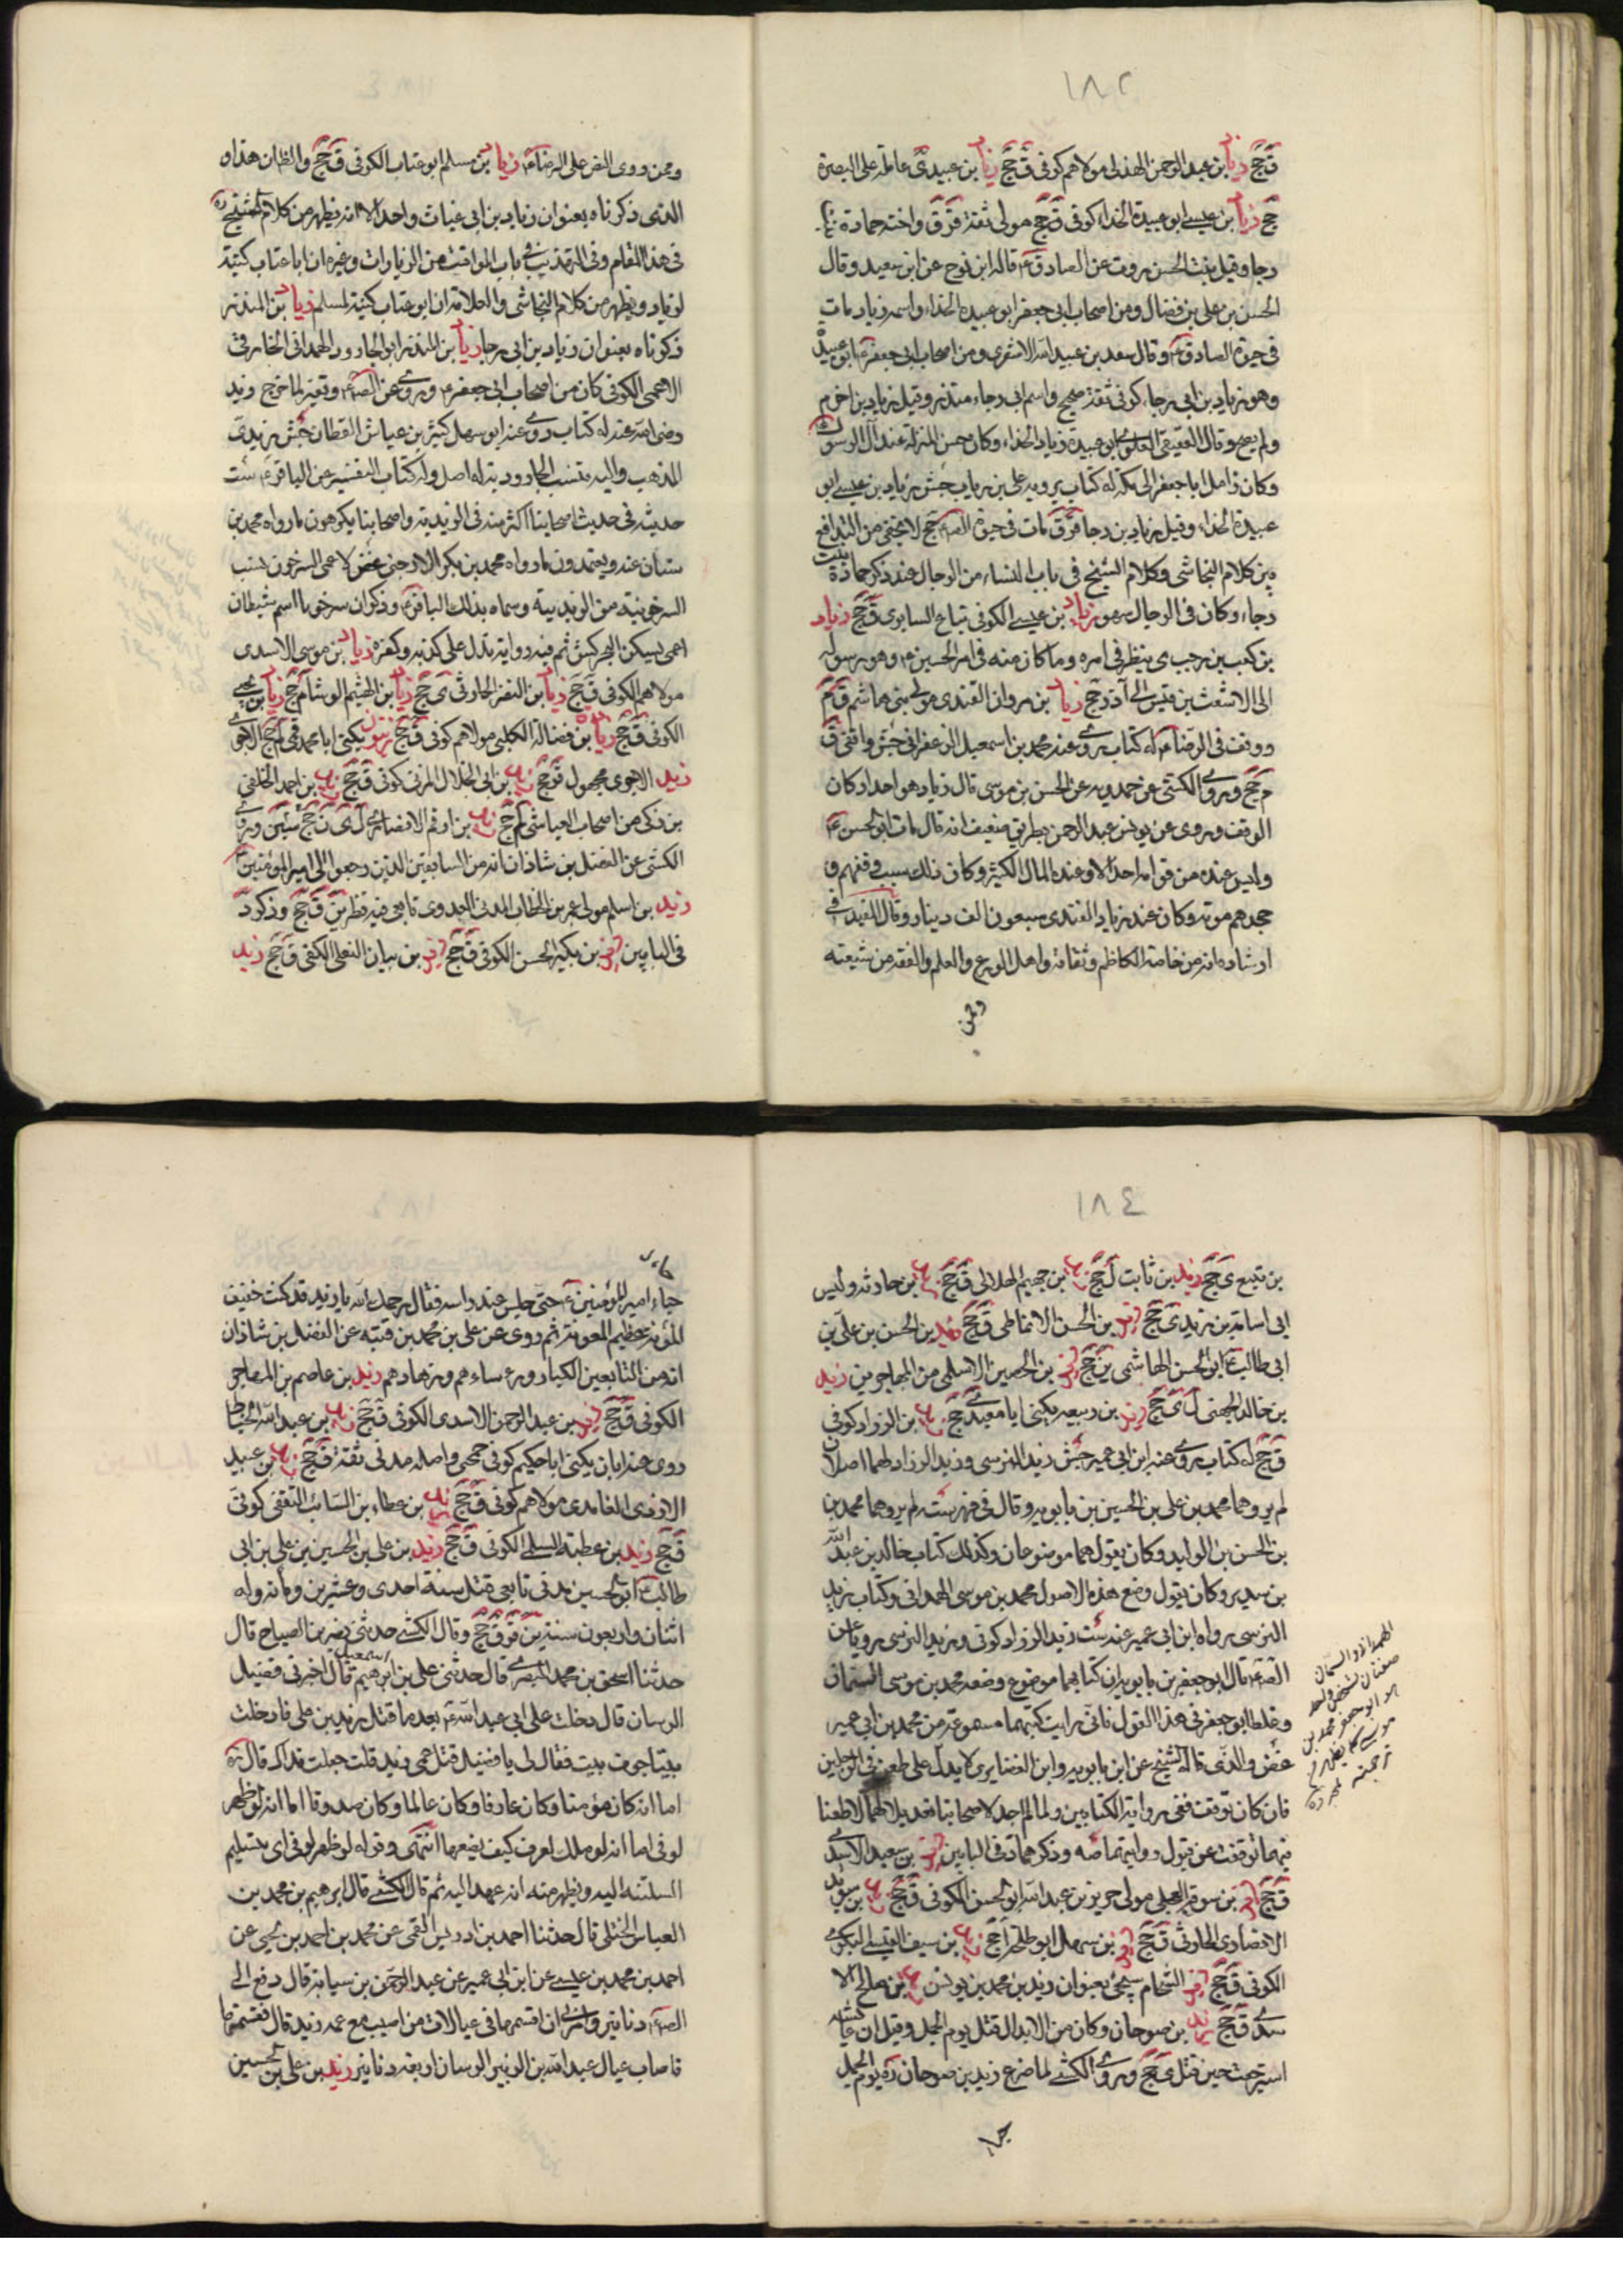 ١٨٢
ق جخ زياد بن عبد الرحمن الهذلى مولاهم كوفى ق جخ زياد بن عبيد ى عامله على البصرة
جخ زياد بن عيسى ابو عبيدة الحذاء كوفى ق جخ مولى ثقة قر ق واخته حمادة بنت
رجا وقيل بنت الحسن روت عن الصادق ع قاله ابن نوح عن ابن سعيد وقال
الحسن بن على بن فضال ومن اصحاب ابى جعفر ابو عبيدة الحذاء واسمه زياد مات
فى حيوة الصادق ع وقال سعد بن عبيد الله الاشعرى ومن اصحاب ابى جعفر ع ابو عبيدة
وهو زياد بن ابى رجاء كوفى ثقة صحيح واسم ابى رجاء منذر وقيل زياد بن اخرم
ولم يصح وقال العقيقى العلوى ابو عبيدة زياد الحذاء وكان حسن المنزلة عند آل الرسول
وكان زامل ابا جعفر الى مكة له كتاب يرويه على بن رياب جش زياد بن عيسى ابو
عبيدة الحذاء وقيل زياد بن رجا قر ق مات فى حيوة الص ع جخ لا يخفى من التدافع
بين كلام النجاشى وكلام الشيخ فى باب النساء من الرجال عند ذكر حمادة بنت
رجاء وكان فى الرجال سهو زياد بن عيسى الكوفى بياع السابرى ق جخ زياد
بن كعب بن مرحب ى ينظر فى امره وما كان منه فى امر الحسين ع وهو رسوله
الى الاشعث بن قيس الى آذر جخ زياد بن مروان القندى مولى بنى هاشم ق م
ووقف فى الرضا ع له كتاب روى عنه محمد بن اسمعيل الزعفرانى جش واقفى ق
م جخ وروى الكشى عن حمدويه عن الحسن بن موسى قال زياد هو احد اركان
الوقف وروى عن يونس عبد الرحمن بطريق ضعيف انه قال مات ابو الحسن ع
وليس عنده من قوامه احد الا وعنده المال الكثير وكان ذلك سبب وقفهم و
جحدهم موته وكان عند زياد القندى سبعون الف دينار وقال المفيد فى
ارشاده انه من خاصة الكاظم وثقاته واهل الورع والعلم والفقه من شيعته
وممن
وممن روى النص على الرضا ع زياد بن مسلم ابو عتاب الكوفى ق جخ والظان هذا و
الذى ذكرناه بعنوان زياد بن ابى غياث واحد الا انه يظهر من كلام الشيخ
فى هذا المقام وفى التهذيب فى باب المواقيت من الزيارات وغيره ان ابا عتاب كنية
لزياد ويظهر من كلام النجاشى والخلاصة ان ابو عتاب كنية لمسلم زياد بن المنذر
ذكرناه بعنوان زياد بن ابى رجا زياد بن المنذر ابو الجارود الهمدانى الخارقى
الاعمى الكوفى كان من اصحاب ابى جعفر ع وروى عن الص ع وتغير لما خرج زيد
رضى الله عنه له كتاب روى عنه ابو سهل كثير بن عياش القطان جش زيدى
المذهب واليه تنسب الجارودية له اصل وله كتاب التفسير عن الباقر ع ست
حديثه فى حديث اصحابنا اكثر منه فى الزيدية واصحابنا يكرهون ما رواه محمد بن
سنان عنه ويعتمدون ما رواه محمد بن بكر الارجنى غض الاعمى السرحوب ينسب
السرحوبية من الزيدية وسماه بذلك الباقر ع وذكر ان سرحوبا اسم شيطان
اعمى يسكن البحر كش ثم فيه رواية تدل على كذبه وكفره زياد بن موسى الاسدى
مولاهم الكوفى ق جخ زياد بن النضر الحارثى ى جخ زياد بن الهثيم الوشا م جخ زياد بن يحيى
الكوفى ق جخ زيادة بن فضالة الكلبى مولاهم كوفى ق جخ يكنى ابا محمد
زيد الاجرى مجهول قر جخ زيد بن ابى الحلال المزنى كوفى ق جخ زيد بن احمد الخلقى
بن زكى من اصحاب العياشى لم جخ زيد بن ارقم الانصارى ل ى ن جخ سين وروى
الكشى عن الفضل بن شاذان انه من السابقين الذين رجعوا الى امير المؤمنين ع
زيد بن اسلم مولى عمر بن الخطاب المدنى العدوى تابعى فيه نظر ين ق جخ وذكره د
فى البابين زيد بن بكير الحسن الكوفى ق جخ زيد بن بيان التغلبى الكوفى ق جخ زيد
١٨٤
بن تبيع ى جخ زيد بن ثابت ل جخ زيد بن جهيم الهلالى ق جخ زيد بن حارثه وليس
ابى اسامة بن زيد ى جخ زيد بن الحسن الانماطى ق جخ زيد بن الحسن بن على بن
ابى طالب ع ابو الحسن الهاشمى ين جخ زيد بن الحصين الاسلمى من المهاجرين زيد
بن خالد الجهنى ل ى جخ زيد بن ربيعه يكنى ابا معبد ى جخ زيد بن الزراد كوفى
ق جخ له كتاب روى عنه ابن ابى عمير جش زيد النرسى وزيد الزراد لهما اصلان
لم يروهما محمد بن على بن الحسين بن بابويه وقال فى فهرسته لم يروهما محمد بن
بن الحسن بن الوليد وكان يقول هما موضوعان وكذلك كتاب خالد بن عبد الله
بن سدير وكان يقول وضع هذه الاصول محمد بن موسى الهمدانى وكتاب زيد
النرسى رواه ابن ابى عمير عنه ست زيد الزراد كوفى وزيد النرسى رويا عن
الص ع قال ابو جعفر بن بابويه ان كتابهما موضوع وضعه محمد بن موسى السمان
وغلط ابو جعفر فى هذا القول فانى رايت كتبهما مسموعة من محمد بن ابى عمير
غض والذى قاله الشيخ عن ابن بابويه وابن الغضايرى لا يدل على طعن فى الرجلين
فان كان توقف ففى رواية الكتابين ولما لم اجد لاصحابنا تعديلا لهما ولا طعنا
فيهما توقفت عن قبول روايتهما صه وذكرهما د فى البابين زيد بن سعيد الاسدى
ق جخ زيد بن سوقة البجلى مولى جرير بن عبد الله ابو الحسن الكوفى ق جخ زيد بن سويد
الانصارى الحارثى ق جخ زيد بن سهل ابو طلحه ل جخ زيد بن سيف القيسى البكرى
الكوفى ق جخ زيد الشحام سيجئ بعنوان زيد بن محمد بن يونس زيد بن صالح الا
سدى ق جخ زيد بن صوحان وكان من الابدال قتل يوم الجمل وقيل ان عايشه
استرجعت حين قتل ى جخ وروى الكشى لما صرع زيد بن صوحان ره يوم الجمل
جاء
صفتان لشخص واحد
جاء امير المؤمنين ع حتى جلس عند راسه فقال رحمك الله يا زيد قد كنت خفيف
المؤنة عظيم المعونة ثم روى عن على بن محمد بن قتيبه عن الفضل بن شاذان
انه من التابعين الكبار ورؤساءهم وزهادهم زيد بن عاصم بن المهاجر
الكوفى ق جخ زيد بن عبد الرحمن الاسدى الكوفى ق جخ زيد بن عبد الله الحناط
روى عنه ابان يكنى ابا حكيم كوفى جمحى واصله مدنى ثقة ق جخ زيد بن عبيد
الازدى الغامدى مولاهم كوفى ق جخ زيد بن عطاء بن السائب الثقفى كوفى
ق جخ زيد بن عطية السلمى الكوفى ق جخ زيد بن على بن الحسين بن على بن ابى
طالب ع ابو الحسين مدنى تابعى قتل سنة احدى وعشرين ومائة وله
اثنان واربعون سنة ين قر ق جخ وقال الكشى حدثنى نصر بن الصباح قال
حدثنا اسحق بن محمد البصرى قال حدثنى على بن اسمعيل قال اخبرنى فضيل
الرسان قال دخلت على ابى عبد الله ع بعد ما قتل زيد بن على فادخلت
بيتا جوف بيت فقال لى يا فضيل قتل عمى زيد قلت جعلت فداك قال ره
اما انه كان مؤمنا وكان عارفا وكان عالما وكان صدوقا اما انه لو ظهر
لوفى اما انه لو ملك لعرف كيف يضعها انتهى وقوله لو ظهر لوفى اى بتسليم
السلتنه اليه ويظهر منه انه عهد اليه ثم قال الكشى قال ابرهيم بن محمد بن
العباس الختلى قال حدثنا احمد بن ادريس القمى عن محمد بن احمد بن يحيى عن
احمد بن محمد بن عيسى عن ابن ابى عمير عن عبد الرحمن بن سيابة قال دفع الى
الص ع دنانير وامرنى ان اقسمها فى عيالات من اصيب مع عمه زيد قال فقسمتها
فاصاب عيال عبد الله بن الزبير الرسان اربعه دنانير زيد بن على بن الحسين